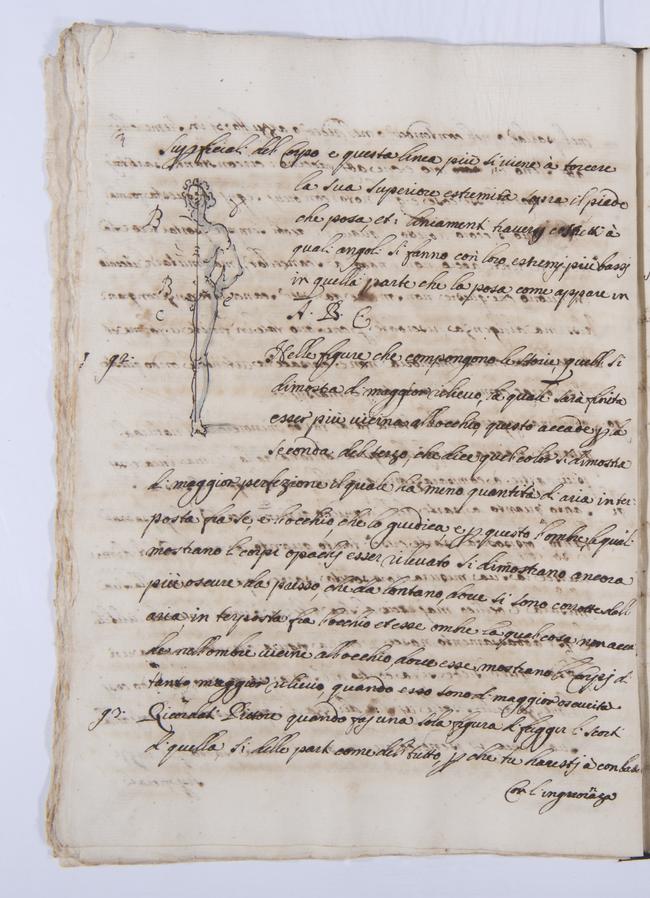 superficiali del Corpo e questa linea più si viene à torcere
la sua superiore estremità sopra il piede
che posa et i liniamenti traversj costretti à
quali angoli si fanno con loro estremj più bassj
in quella parte che la posa come appare in
A. B. C.
B
B
C
92. Nelle figure che compongono le storie, quella si
dimostra di maggior rilievo, la quale sarà finita
esser più vicina all'occhio questo accade p la
seconda del terzo, che dice quel color si dimostra
di maggior perfezione il quale ha meno quantità d'aria inter-
posta fra se, e l'occhio, che lo giudica, e p questo l'ombre le quali
mostrano li corpi opachj esser rilevato si dimostrano ancora
più oscure da presso, che da lontano, dove si sono corrotte dall'
aria, in terposta fra l'occhio et esse ombre la qual cosa non acca
de nell'ombre vicine all'occhio, dove esse mostrano li Corpj di
tanto maggior rilievo quando esso sono di maggior oscurità
93. Ricordati Pittore quando faj una sola figura di fuggir li scorti
di quella si delle parti come del tutto, p che tu harestj à combatte
Con l'ingnoranza